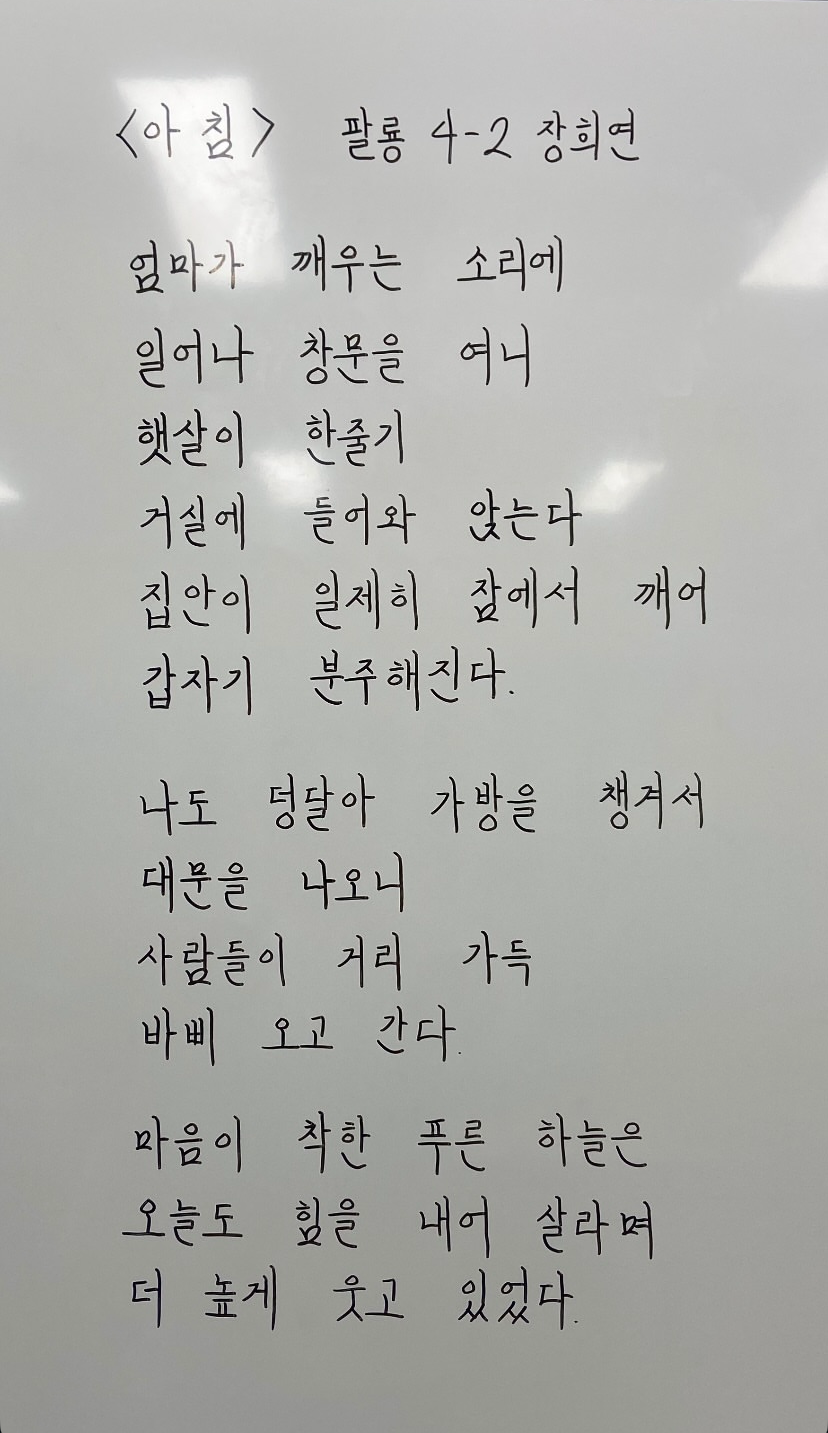 <아침> 팔룡 4-2 장희연
엄마가 깨우는 소리에
일어나 창문을 여니
햇살이 한줄기
거실에 들어와 앉는다
집안이 일제히 잠에서 깨어
갑자기 분주해진다.
나도 덩달아 가방을 챙겨서
대문을 나오니
사람들이 거리 가득
바삐 오고 간다.
마음이 착한 푸른 하늘은
오늘도 힘을 내어 살라며
더 높게 웃고 있었다.